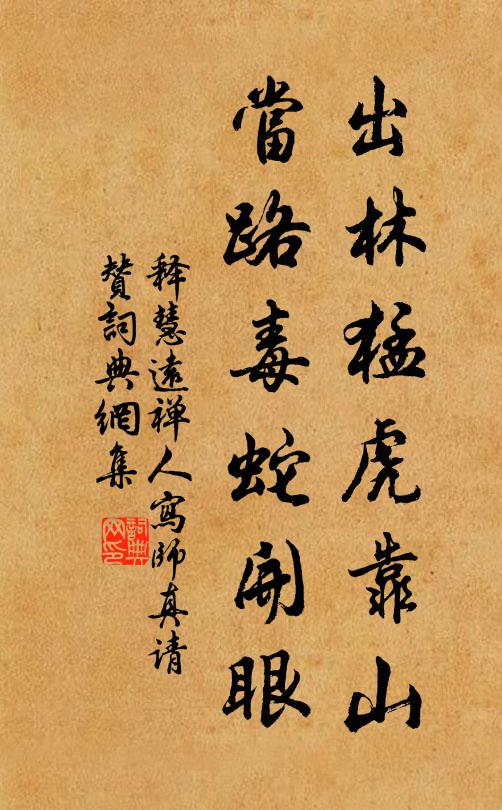 出林猛虎靠山
當路毒蛇開眼
释慧遠禅人寫師真请
贊詞典網集
詞典
网印